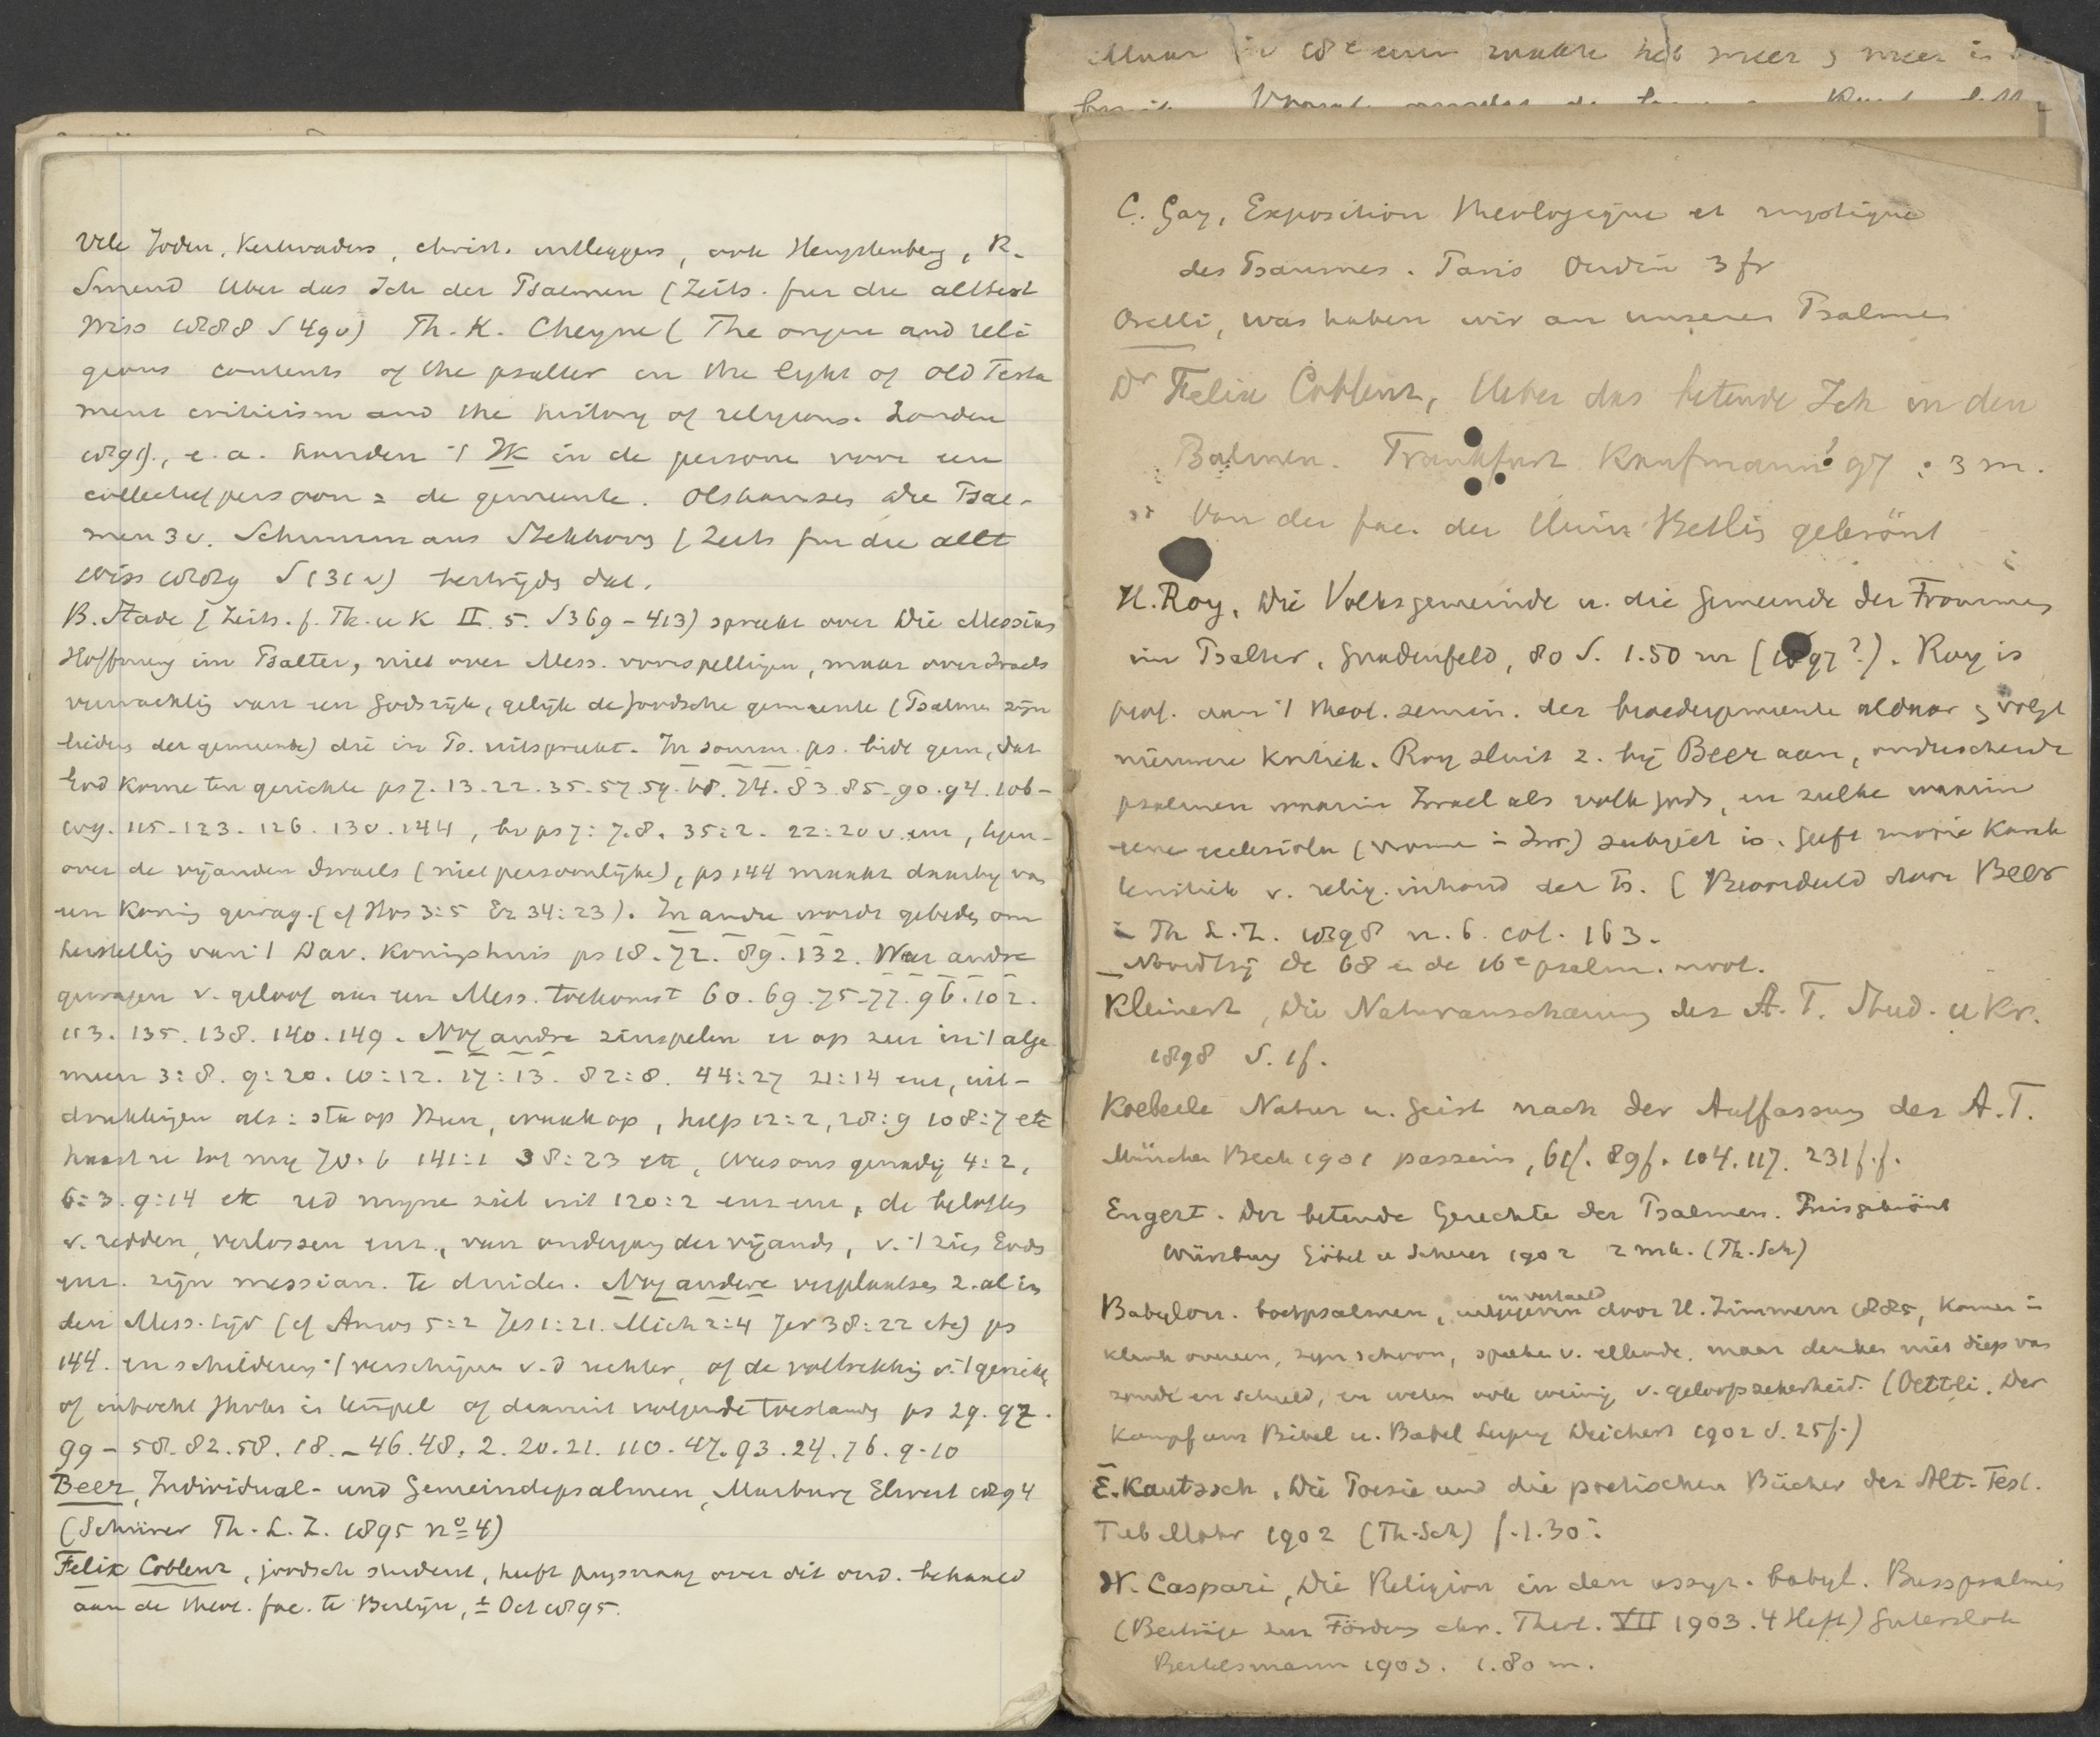 Vele Joden, Kerkvaders, christ. uitleggers, ook Hengstenberg, R.
Smend Uber das Ich der Psalmen (Zeits. fur die alttest
Wiss 1888 S 49v) Th. K. Cheyne (The origin and reli
gious contents of the psalter in the light of Old Testa
ment criticism and the history of religions. London
1891), e.a. houden 't Ik in de psalmen voor een
collectief persoon = de gemeente. Olshausen Die Psal-
men 3v. Schuurmans Stekhoven (Zeits fur die altt
Wiss 1889 S 131v) bestrijds dat.
B. Stade (Zeits. f. Th. u K II. 5. S 369 - 413) spreekt over Die Messian
Hoffnung im Psalter, niet over Mess. voorspellingen, maar over Israels
verwachting van een Godsrijk, gelijk de Joodsche gemeente (Psalmen zijn
liederen der gemeente) die in Ps. uitspreekt. In somm. ps. bidt gem., dat
God kome ten gerichte ps 7. 13. 22. 35. 57. 59. 68. 74. 83. 85. 90. 94. 106 -
109. 115. 123. 126. 130. 144, bv ps 7: 7.8. 35:2. 22:20 v. enz, tegen-
over de vijanden Israels (niet persoonlijke), ps 144 maakt daarby van
een Koning gewag. (cf Hos 3:5 Ez 34:23). In andre wordt gebeden om
herstelling van 't Dav. Koningshuis ps 18. 72. 89. 132. Weer andre
gewagen v. geloof aan een Mess. toekomst 60. 69. 75-77. 96. 102.
113. 135. 138. 140. 149. Nog andre zinspelen er op zeer in 't alge
meen 3:8. 9:20. 10:12. 17:13. 82:8. 44:27 21:14 enz, uit-
drukkingen als: sta op Heer, waak op, help 12:2, 28:9 108:7 etc
haast u tot my 70:6 141:1 38:23 etc, Wees ons genadig 4:2,
6:3. 9:14 etc red mijne ziel uit 120:2 enz enz, de beloften
v. redden, verlossen enz., van ondergang der vijanden, v. 't zien Gods
enz. zijn messian. te duiden. Nog andere verplaatsen z. al in
den Mess. tijd (cf Amos 5:2 Jes 1:21. Mich 2:4 Jer 38:22 etc) ps
144. en schilderen 't verschijnen v. d rechter, of de voltrekking v. 't gericht,
of intocht Jhvhs in tempel of daaruit volgende toestand ps 29. 97.
99 - 50. 82. 58. 18. - 46. 48. 2. 20. 21. 110. 47. 93. 24. 76. 9-10
Beer, Individual- und Gemeindepsalmen, Marburg Elwert 1894
(Schürer Th. L. Z. 1895 no 4)
Felix Coblenz, joodsch student, heeft prijsvraag over dit ond. behandeld
aan de theol. fac. te Berlijn, ± Oct 1895.
C. Gay, Exposition theologique et mystique
des Psaumes. Paris Oudin 3 fr
Orelli, was haben wir an unseren Psalmen
Dr Felix Coblenz, Ueber das betende Ich in den
Psalmen. Frankfurt Kaufmann 97 : 3 m.
Von der fac. der Univ. Berlin gekrönt
H. Roy, Die Volksgemeinde u. die Gemeinde der Frommen
im Psalter, Gnadenfeld, 80 S. 1.50 m (1897?). Roy is
prof. aan 't theol. semin. der broedergemeente aldaar & volgt
nieuwere Kritiek. Roy sluit z. bij Beer aan, onderscheidt
psalmen waarin Israel als volk Gods, en zulke waarin
eene ecclesiola (vrome in Isr.) subject is. Geeft mooie Karak
teristiek v. relig. inhoud der Ps. (Beoordeeld door Beer
in Th L. Z. 1898 n. 6. col. 163.
Noordtzij de 68 en de 16e psalm. 
Kleinert, Die Naturanschauung des A. T. Stud. u Kr.
1898 S. 1f.
Koeberle Natur u. Geist nach der Auffassung des A.T.
München Beck 1901 passim, 61f. 89f. 104. 117. 231f.f.
Engert. Der betende Gerechte der Psalmen. Preisgekrönt
Würzburg Göbel u Scherer 1902 2 mk. (Th. Sch)
en vertaald
Babylon. boetpsalmen, uitgegeven door H. Zimmern 1885, komen in
klank overeen, zyn schoon, spreken v. ellende, maar denken niet diep van
zonde en schuld, en weten ook weinig v. geloofszekerheid. (Oettli. Der
Kampf um Bibel u. Babel Leipzig Deichert 1902 S. 25f.)
E. Kautzsch, Die Poesie und die poetischen Bücher des Alt. Test.
Tub Mohr 1902 (Th. Sch) f. 1.30.
W. Caspari, Die Religion in den assyr. babyl. Busspsalmen
(Beiträge zur Förderung chr. Theol. VII 1903. 4 Heft) Gutersloh
Bertelsmann 1903. 1.80 m.